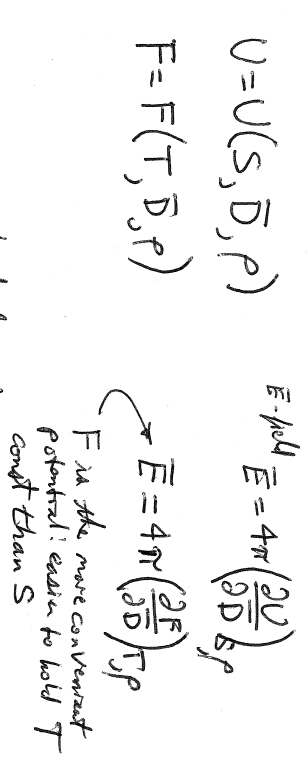 U = U(S, D̄, ρ)
Ē-field Ē = 4π(∂U/∂D̄)_{S,ρ}
F = F(T, D̄, ρ)
Ē = 4π(∂F/∂D̄)_{T,ρ}
F is the more convenient
potential: easier to hold T
const than S